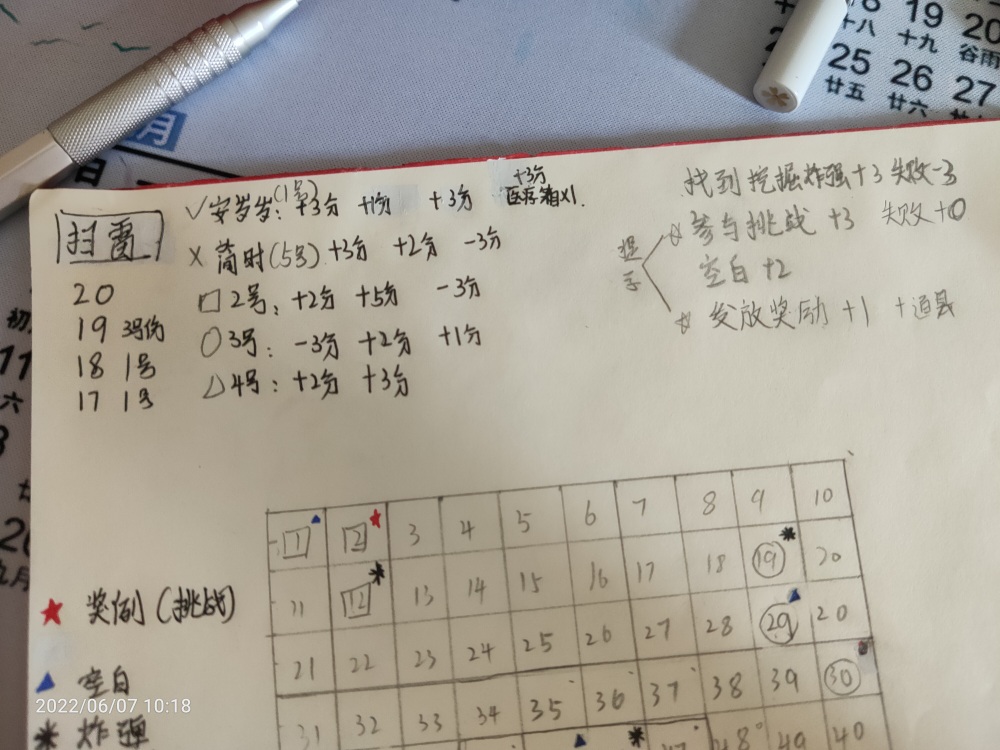 18 19 20
十八 十九 谷雨
25 26 27
廿五 廿六
月
日
扫雷
20
19 3号伤
18 1号
17 1号
✓安岁岁(1号): +3分 +1分 +3分 +3分 医疗箱×1
×简时(5号) +3分 +2分 -3分
□2号: +2分 +5分 -3分
○3号: -3分 +2分 +1分
△4号: +2分 +3分
找到挖掘炸弹+3 失败-3
☆参与挑战 +3 失败+0
空白+2
☆ 发放奖励 +1 +道具
1 2 3 4 5 6 7 8 9 10
11 12 13 14 15 16 17 18 19 20
21 22 23 24 25 26 27 28 29 20
31 32 33 34 35 36 37 38 39 30
48 49 40
★ 奖例(挑战)
▲ 空白
✱ 炸弹
初
11
六
2022/06/07 10:18